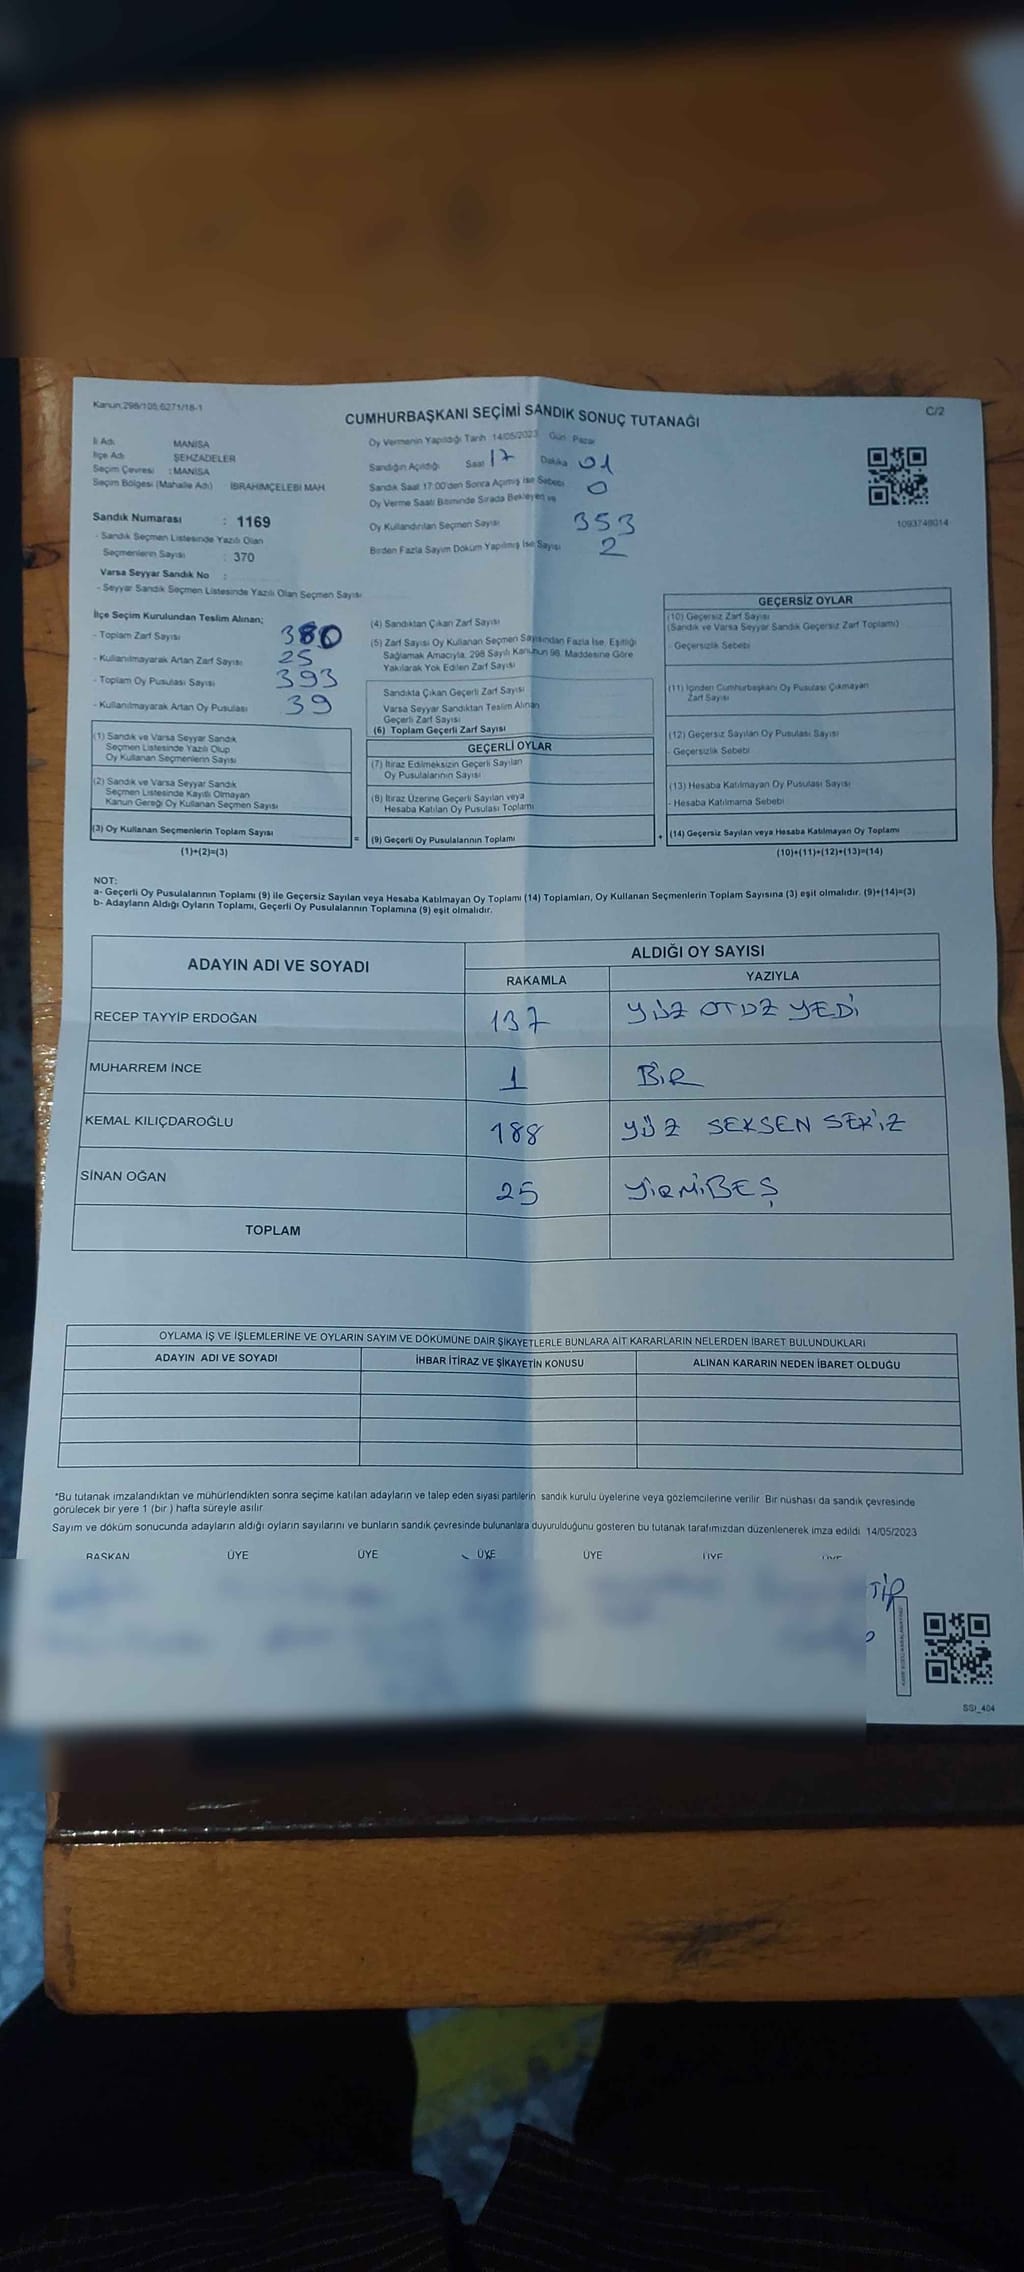 Kanun:298/105,6271/18-1
C/2
CUMHURBAŞKANI SEÇİMİ SANDIK SONUÇ TUTANAĞI
İl Adı MANİSA
İlçe Adı ŞEHZADELER
Seçim Çevresi : MANİSA
Seçim Bölgesi (Mahalle Adı) İBRAHİMÇELEBİ MAH.
Oy Vermenin Yapıldığı Tarih :14/05/2023 Gün : Pazar
Sandığın Açıldığı Saat 17 Dakika 01
Sandık Saat 17:00'den Sonra Açımış İse Sebebi
Oy Verme Saati Bitiminde Sırada Bekleyen ve 0
Oy Kullandırılan Seçmen Sayısı 353
Birden Fazla Sayım Döküm Yapılmış İse Sayısı 2
1093748014
Sandık Numarası : 1169
- Sandık Seçmen Listesinde Yazılı Olan
Seçmenlerin Sayısı : 370
Varsa Seyyar Sandık No :
- Seyyar Sandık Seçmen Listesinde Yazılı Olan Seçmen Sayısı
İlçe Seçim Kurulundan Teslim Alınan;
- Toplam Zarf Sayısı 380
- Kullanılmayarak Artan Zarf Sayısı 25
- Toplam Oy Pusulası Sayısı 393
- Kullanılmayarak Artan Oy Pusulası 39
(1) Sandık ve Varsa Seyyar Sandık
Seçmen Listesinde Yazılı Olup
Oy Kullanan Seçmenlerin Sayısı
(2) Sandık ve Varsa Seyyar Sandık
Seçmen Listesinde Kayıtlı Olmayan
Kanun Gereği Oy Kullanan Seçmen Sayısı
(3) Oy Kullanan Seçmenlerin Toplam Sayısı
(1)+(2)=(3)
(4) Sandıktan Çıkan Zarf Sayısı
(5) Zarf Sayısı Oy Kullanan Seçmen Sayısından Fazla İse, Eşitliği
Sağlamak Amacıyla, 298 Sayılı Kanunun 98. Maddesine Göre
Yakılarak Yok Edilen Zarf Sayısı
Sandıkta Çıkan Geçerli Zarf Sayısı
Varsa Seyyar Sandıktan Teslim Alınan
Geçerli Zarf Sayısı
(6) Toplam Geçerli Zarf Sayısı
GEÇERLİ OYLAR
(7) İtiraz Edilmeksizin Geçerli Sayılan
Oy Pusulalarının Sayısı
(8) İtiraz Üzerine Geçerli Sayılan veya
Hesaba Katılan Oy Pusulası Toplamı
= (9) Geçerli Oy Pusulalarının Toplamı
GEÇERSİZ OYLAR
(10) Geçersiz Zarf Sayısı
(Sandık ve Varsa Seyyar Sandık Geçersiz Zarf Toplamı)
- Geçersizlik Sebebi
(11) İçinden Cumhurbaşkanı Oy Pusulası Çıkmayan
Zarf Sayısı
(12) Geçersiz Sayılan Oy Pusulası Sayısı
- Geçersizlik Sebebi
(13) Hesaba Katılmayan Oy Pusulası Sayısı
- Hesaba Katılmama Sebebi
+ (14) Geçersiz Sayılan veya Hesaba Katılmayan Oy Toplamı
(10)+(11)+(12)+(13)=(14)
NOT:
a- Geçerli Oy Pusulalarının Toplamı (9) ile Geçersiz Sayılan veya Hesaba Katılmayan Oy Toplamı (14) Toplamları, Oy Kullanan Seçmenlerin Toplam Sayısına (3) eşit olmalıdır. (9)+(14)=(3)
b- Adayların Aldığı Oyların Toplamı, Geçerli Oy Pusulalarının Toplamına (9) eşit olmalıdır.
ADAYIN ADI VE SOYADI ALDIĞI OY SAYISI
RAKAMLA YAZIYLA
RECEP TAYYİP ERDOĞAN 137 YÜZ OTUZ YEDİ
MUHARREM İNCE 1 BİR
KEMAL KILIÇDAROĞLU 188 YÜZ SEKSEN SEKİZ
SİNAN OĞAN 25 YİRMİBEŞ
TOPLAM
OYLAMA İŞ VE İŞLEMLERİNE VE OYLARIN SAYIM VE DÖKÜMÜNE DAİR ŞİKAYETLERLE BUNLARA AİT KARARLARIN NELERDEN İBARET BULUNDUKLARI
ADAYIN ADI VE SOYADI İHBAR İTİRAZ VE ŞİKAYETİN KONUSU ALINAN KARARIN NEDEN İBARET OLDUĞU
*Bu tutanak imzalandıktan ve mühürlendikten sonra seçime katılan adayların ve talep eden siyasi partilerin sandık kurulu üyelerine veya gözlemcilerine verilir. Bir nüshası da sandık çevresinde
görülecek bir yere 1 (bir ) hafta süreyle asılır.
Sayım ve döküm sonucunda adayların aldığı oyların sayılarını ve bunların sandık çevresinde bulunanlara duyurulduğunu gösteren bu tutanak tarafımızdan düzenlenerek imza edildi. 14/05/2023
BAŞKAN ÜYE ÜYE ÜYE ÜYE ÜYE ÜYE
TİP
SSI_404